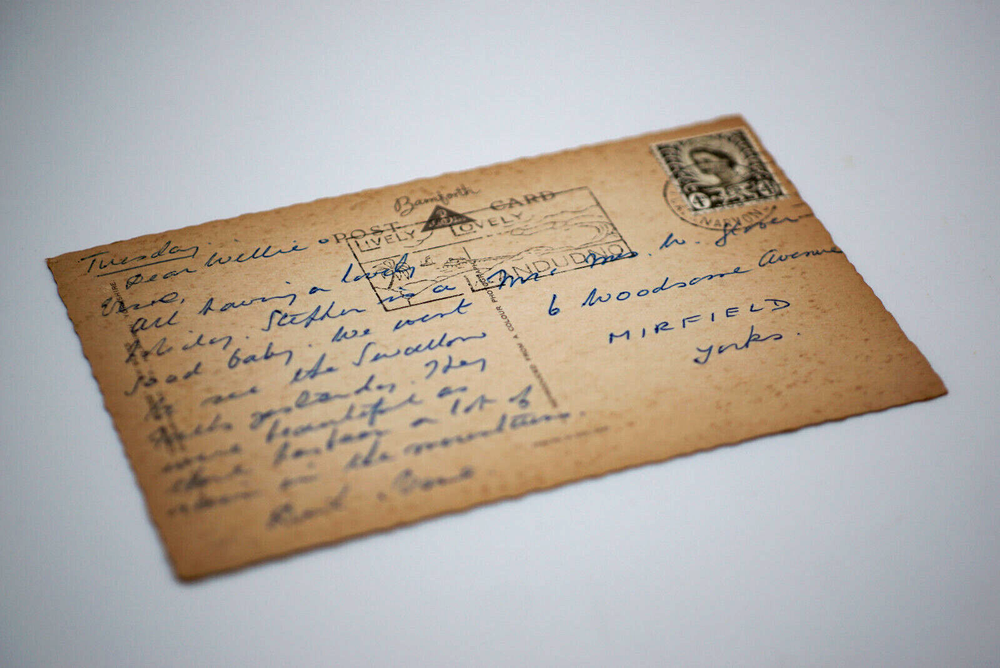 Bamforth
POST CARD
LIVELY LOVELY
LLANDUDNO
4D
Tuesday
Dear Willie &
all having a lovely
holiday. Stephen is a
good baby. We went
to see the Swallow
Falls yesterday. They
were beautiful as
there has been a lot of
rain in the mountains.
Mr. Mrs. W.
6 Woodsome Avenue
MIRFIELD
Yorks.